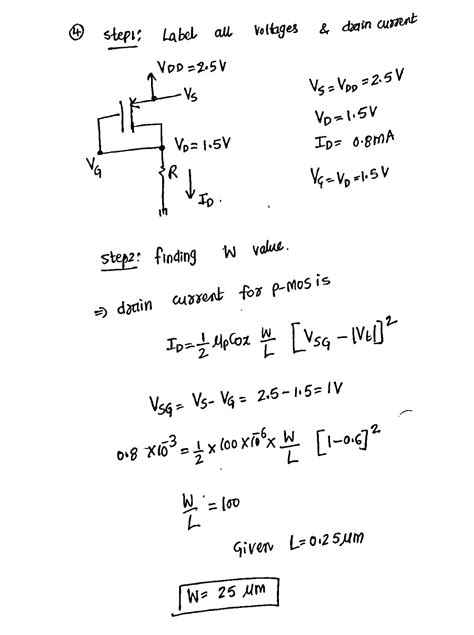 ④ Step1: Label all voltages & drain current
VDD = 2.5V
VS
VS = VDD = 2.5V
VD = 1.5V
VD = 1.5V
ID = 0.8mA
VG
R
ID.
VG = VD = 1.5V
Step2: finding W value.
⇒ drain current for p-mos is
ID = 1/2 μpCox W/L [VSG - |Vt|]²
VSG = VS - VG = 2.5 - 1.5 = 1V
0.8 × 10⁻³ = 1/2 × 100 × 10⁻⁶ × W/L [1 - 0.6]²
W/L = 100
Given L = 0.25 μm
W = 25 μm